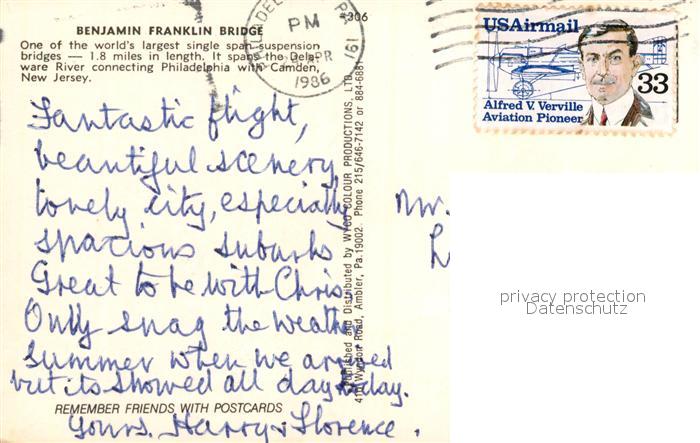 #306
BENJAMIN FRANKLIN BRIDGE
One of the world's largest single span suspension
bridges — 1.8 miles in length. It spans the Dela-
ware River connecting Philadelphia with Camden,
New Jersey.
PM
APR
1986
191
USAirmail
33
Alfred V. Verville
Aviation Pioneer
Fantastic flight,
beautiful scenery
lovely city, especially
spacious suburbs
Great to be with Chris
Only snag the weather,
summer when we arrived
but its showed all day today.
Yours. Harry & Florence.
REMEMBER FRIENDS WITH POSTCARDS
Published and Distributed by WYCO COLOUR PRODUCTIONS, LTD.
Road, Ambler, Pa. 19002. Phone 215/646-7142 or 884-688
privacy protection
Datenschutz